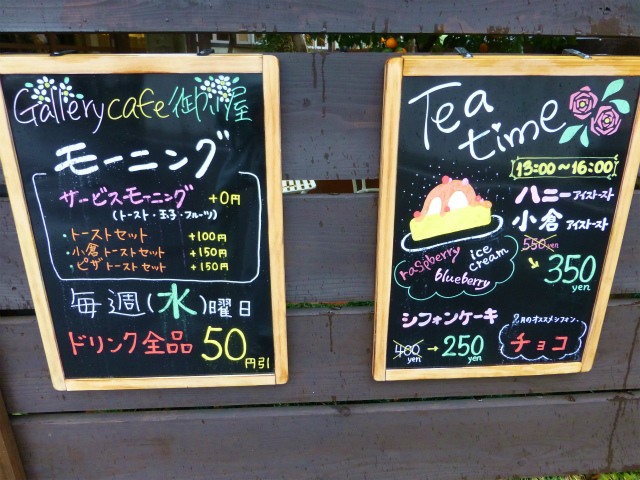 Gallery cafe 御小屋
モーニング
サービスモーニング +0円
(トースト・玉子・フルーツ)
・トーストセット +100円
・小倉トーストセット +150円
・ピザトーストセット +150円
毎週(水)曜日
ドリンク全品 50円引
Tea time
13:00~16:00
ハニーアイストースト
小倉アイストースト
550yen
→ 350yen
raspberry
ice cream
blueberry
シフォンケーキ
400yen → 250yen
2月のオススメシフォン。
チョコ